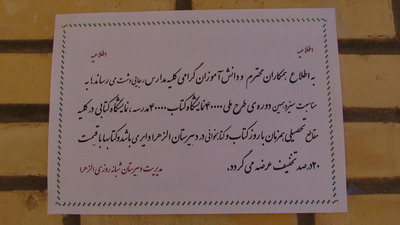 اطلاعیه اطلاعیه
به اطلاع همکاران محترم و دانش آموزان گرامی کلیه مدارس رجایی دشت می رساند؛ به
مناسبت سیزدهمین دوره ی طرح ملی ۴۰۰۰۰ نمایشگاه کتاب ۴۰۰۰۰ مدرسه، نمایشگاه کتابی در کلیه
مقاطع تحصیلی همزمان با روز کتاب و کتابخوانی در دبیرستان الزهرا دایر می باشد و کتابها با قیمت
۲۰ درصد تخفیف عرضه می گردد.
مدیریت دبیرستان شبانه روزی الزهرا